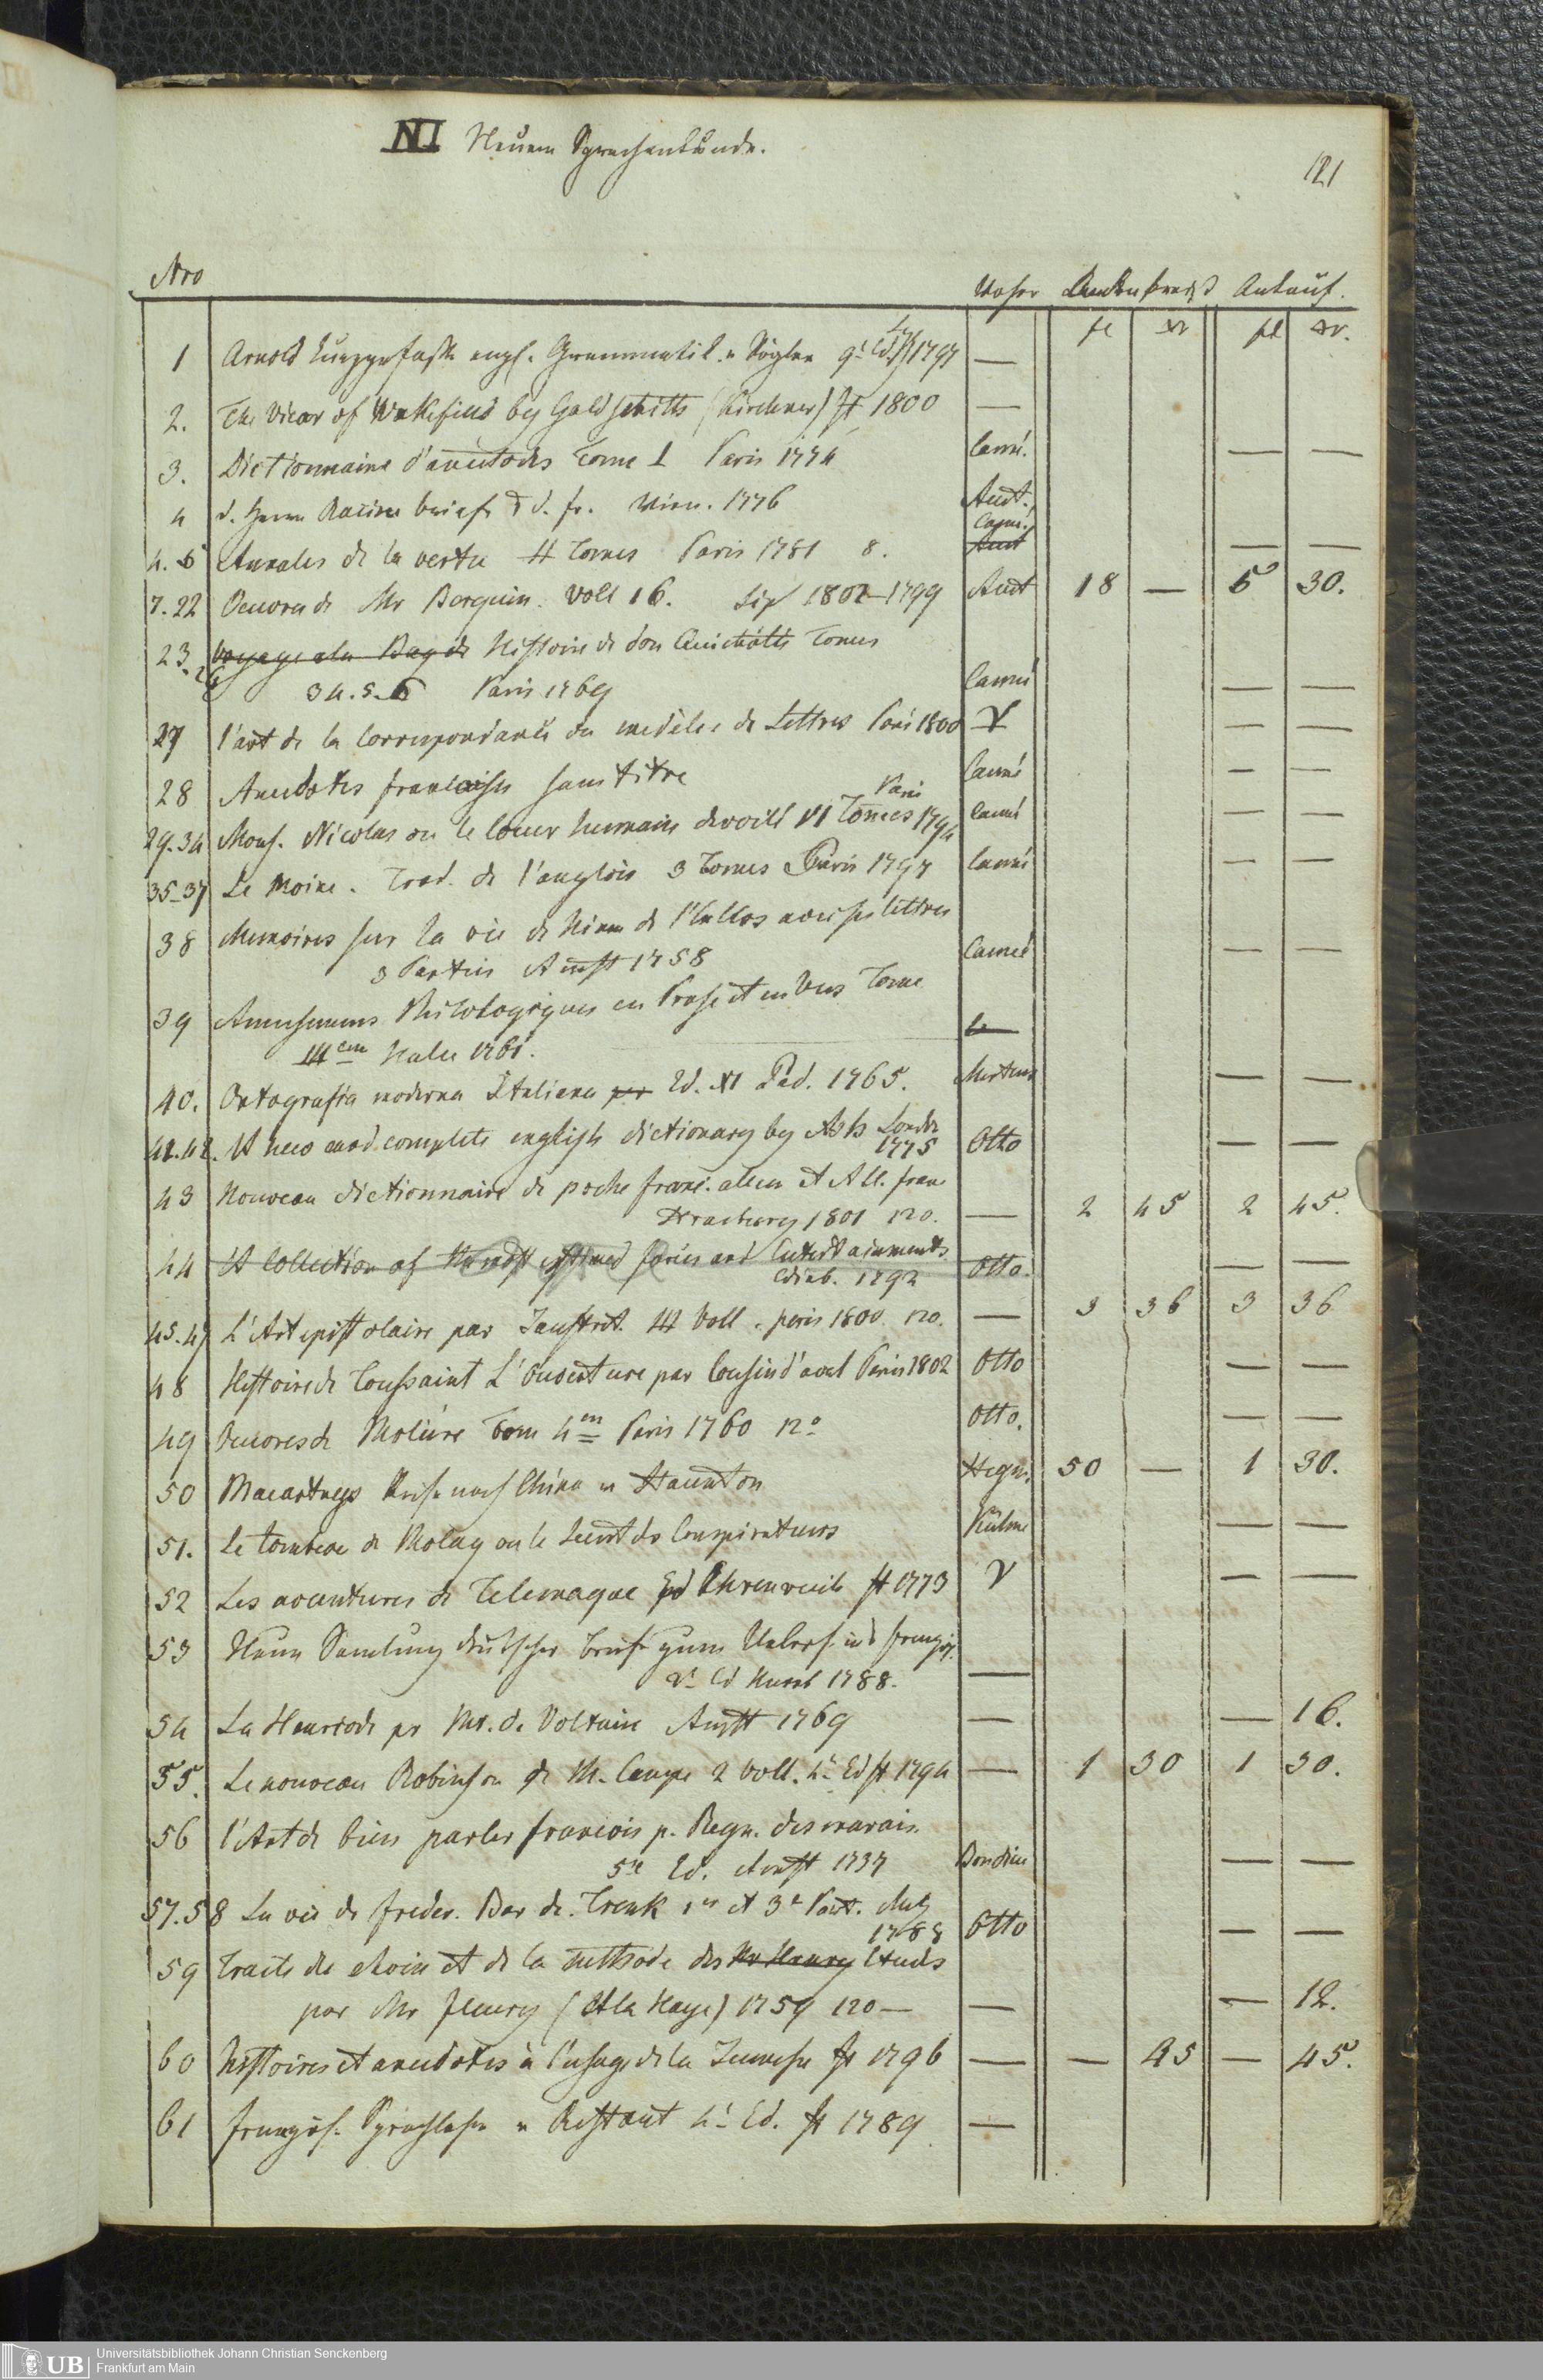 NI Neuere Sprachenkunde.
121
Nro Woher Ladenpreiß Ankauf.
fl xr fl xr.
1 Arnold kurzgefaßte engl. Grammatik v Rogler 9t Ed. 1797 —
2. The Vicar of Wakefield by Goldschith (Kirchner) ff 1800 —
3. Dictionnaire d'anecdotes Tome I Paris 1774 Camé. — —
4 d. Herrn Racine briefe Wien. 1776 Aud.
4. 5 Annales de la vertu II Tomes Paris 1781 8. Camé. Aud — —
7.22 Oeuvres de Mr Berquin. Voll 16. Lip 1802–1799 Aud 18 — 5 30.
23 Voyage Histoire de don Quichotte Tomes
3 4. 5. 6 Paris 1769 Camé — —
27 l'art de la Correspondance ou modèles de Lettres Paris 1800 — —
28 Anecdotes françaises sans titre Camé — —
29.34 Mons. Nicolas ou le coeur humain devoilé VI Tomes Paris 1794 Camé — —
35–37 Le Moine. Trad. de l'anglois 3 Tomes Paris 1797 Camé — —
38 Memoires sur la vie de Ninon de l'Enclos avec ses lettres
3 Parties Amst 1758 Camé — —
39 Amusemens Philologiques en Prose et en Vers Tome
III em Halle 1761. —
40. Ortografia moderna Italiana per Ed. XI Pad. 1765. Mertens — —
41.42. A new and complete english dictionary by Ash London
1775 Otto — —
43 Nouveau dictionnaire de poche franc. alem et All. fran
Strasburg 1801 120. — 2 45 2 45.
44 A Collection of the most esteemed stories and Entertainments
Edinb. 1792 Otto. — —
45.47 L'Art epistolaire par Jauffret. III Voll. paris 1800. 120. — 3 36 3 36
48 Histoire de Toussaint L'Ouverture par Cousin d'aval Paris 1802 Otto — —
49 Oeuvres de Moliére Tom 4em Paris 1760 12o Otto. — —
50 Macartneys Reise nach China v Staunton 50 — 1 30.
51. Le tombeau de Molay ou le Secret des Conspirateurs Kühne — —
52 Les aventures de Telemaque Ed Ehrenreich ff 1773 — —
53 Neue Samlung deutscher Briefe zum Uebers. ins französ.
2t Ed 1788. —
54 La Henriade pr Mr. de Voltaire Amst 1769 — — 16.
55. Le nouveau Robinson de M. Campe 2 Voll. 4t Ed ff 1794 — 1 30 1 30.
56 l'Art de bien parler francois p. Regn. desmarais.
5e Ed. Amst 1737 — —
57.58 La vie de freder. Bar de. Trenk 1er et 3e Part. Metz
1788 Otto — —
59 Traité du choix et de la methode des Mr Fleury Etudes
par Mr fleury (A la Haye) 1759 120 — — — 12.
60 histoires et anecdotes à l'usage de la Jeunesse ff 1796 — — 45 — 45.
61 französ. Sprachlehre v Restaut 4t Ed. ff 1789 —
UB Universitätsbibliothek Johann Christian Senckenberg
Frankfurt am Main